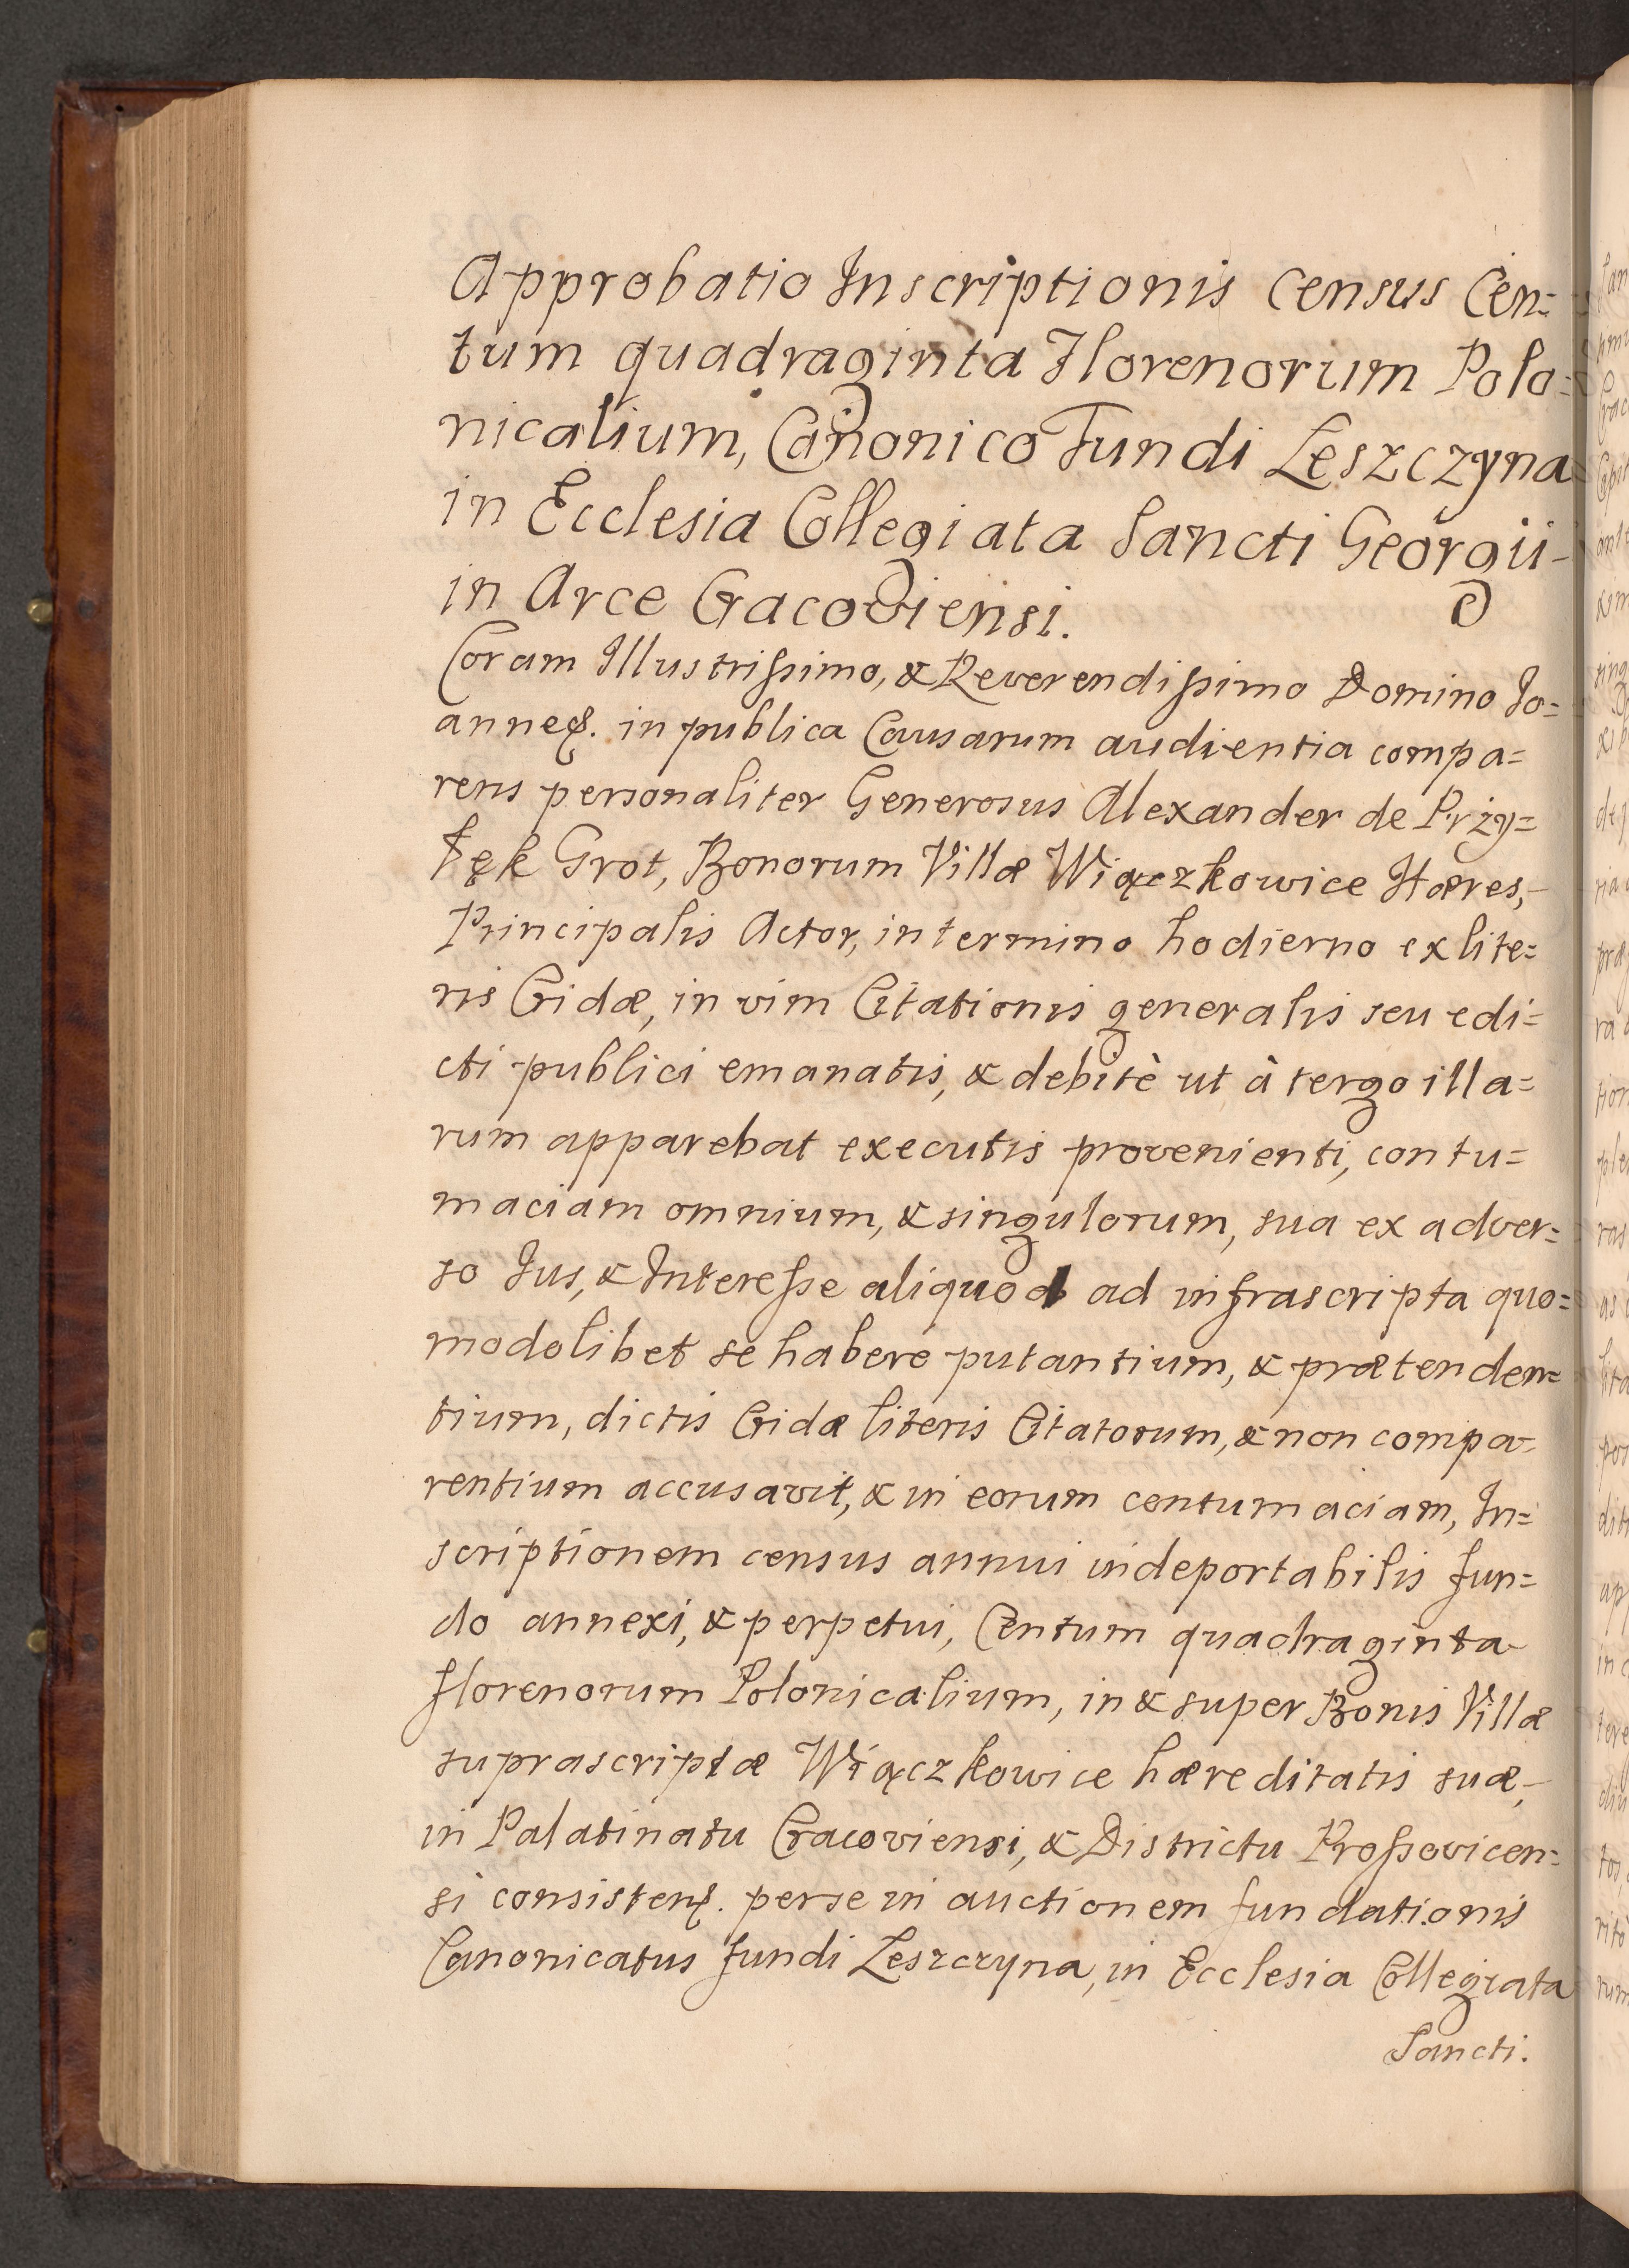 Approbatio Inscriptionis Census Cen=
tum quadraginta Florenorum Polo=
nicalium, Canonico Fundi Leszczyna
in Ecclesia Collegiata Sancti Georgii
in Arce Cracoviensi.
Coram Illustrissimo, & Reverendissimo Domino Jo=
anne &. in publica Causarum audientia compa=
rens personaliter Generosus Alexander de Przy=
łęk Grot, Bonorum Villæ Wiączkowice Hæres,
Principalis Actor, in termino hodierno ex lite=
ris Cridæ, in vim Citationis generalis seu edi=
cti publici emanatis, & debitè ut à tergo illa=
rum apparebat executis provenienti, contu=
maciam omnium, & singulorum, sua ex adver=
so Jus, & Interesse aliquod ad infrascripta quo=
modolibet se habere putantium, & prætenden=
tium, dictis Cridæ literis Citatorum, & non compa=
rentium accusavit, & in eorum contumaciam, In=
scriptionem census annui indeportabilis fun=
do annexi, & perpetui, Centum quadraginta
florenorum Polonicalium, in & super Bonis Villæ
suprascriptæ Wiączkowice hæreditatis suæ,
in Palatinatu Cracoviensi, & Districtu Prossovicen=
si consisten. per se in auctionem fundationis
Canonicatus fundi Leszczyna, in Ecclesia Collegiata
Sancti.